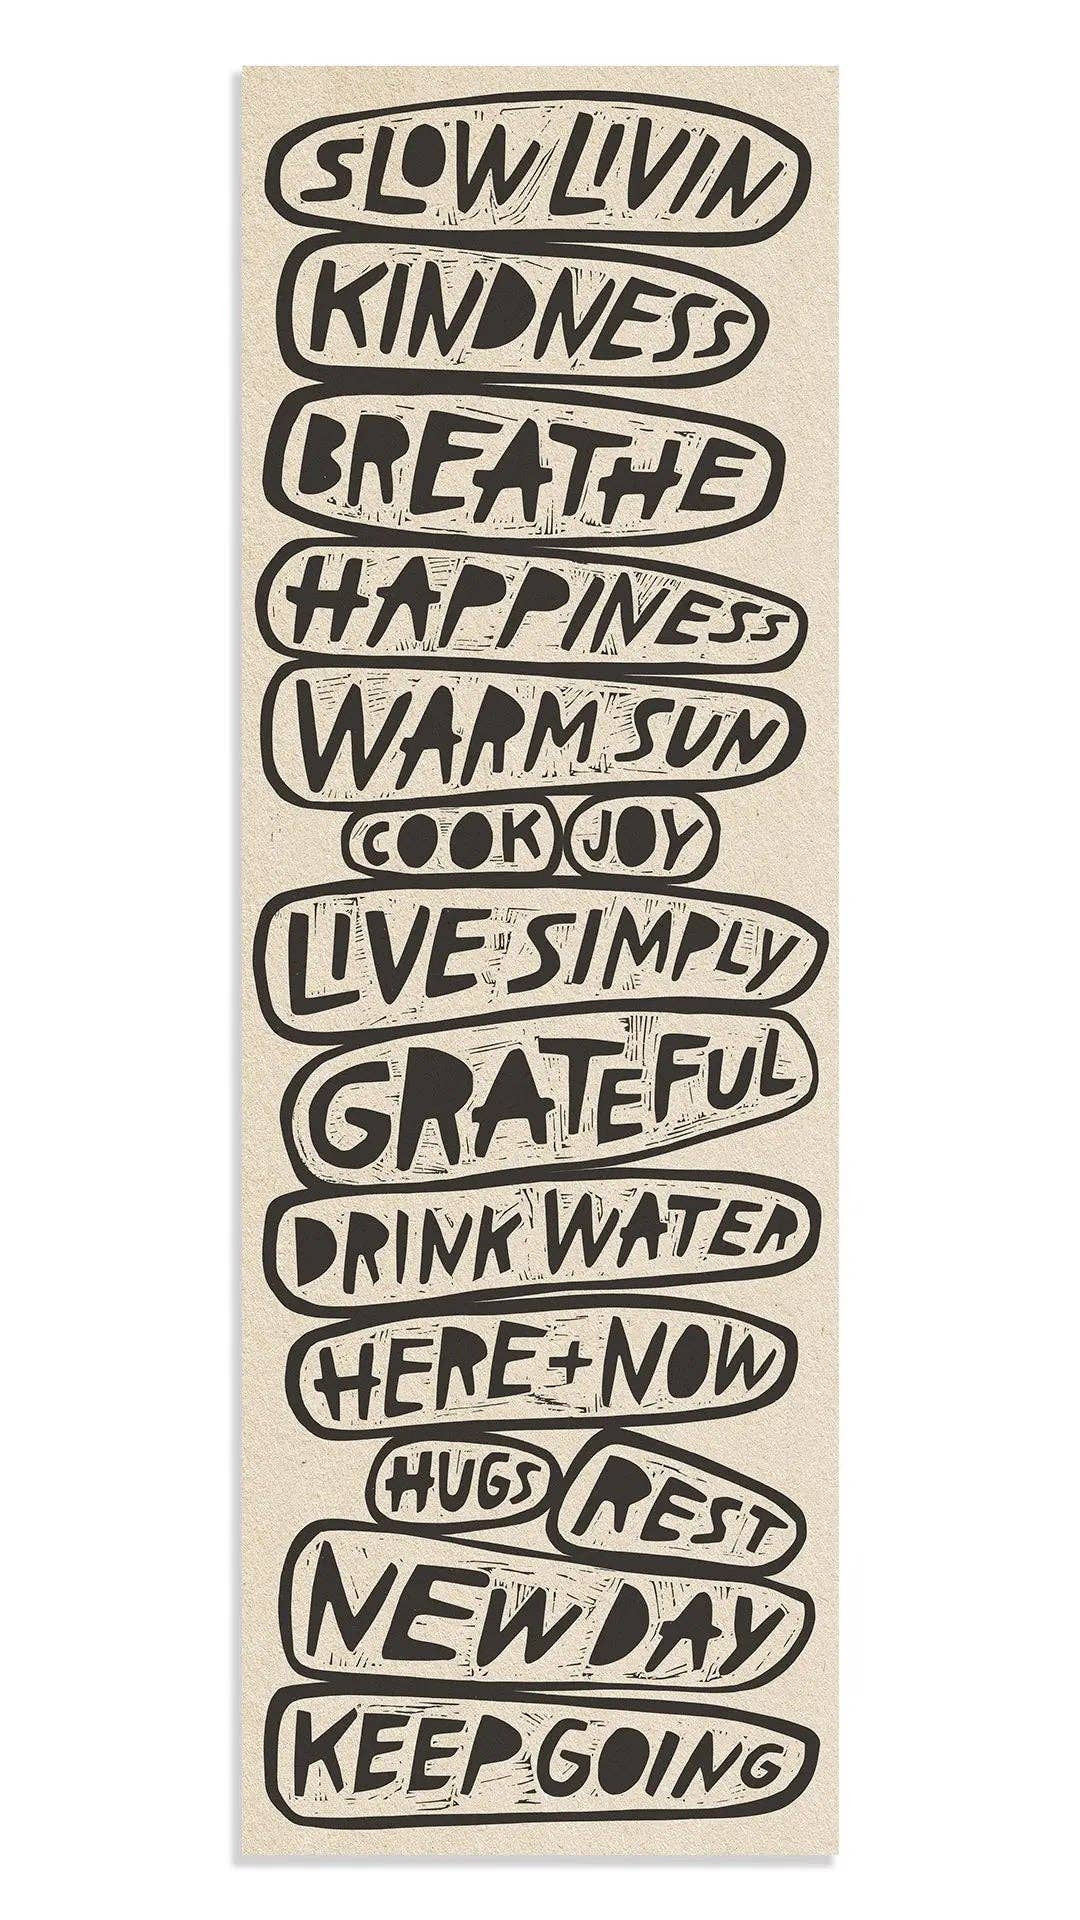 SLOW LIVIN
KINDNESS
BREATHE
HAPPINESS
WARM SUN
COOK JOY
LIVE SIMPLY
GRATEFUL
DRINK WATER
HERE + NOW
HUGS REST
NEW DAY
KEEP GOING